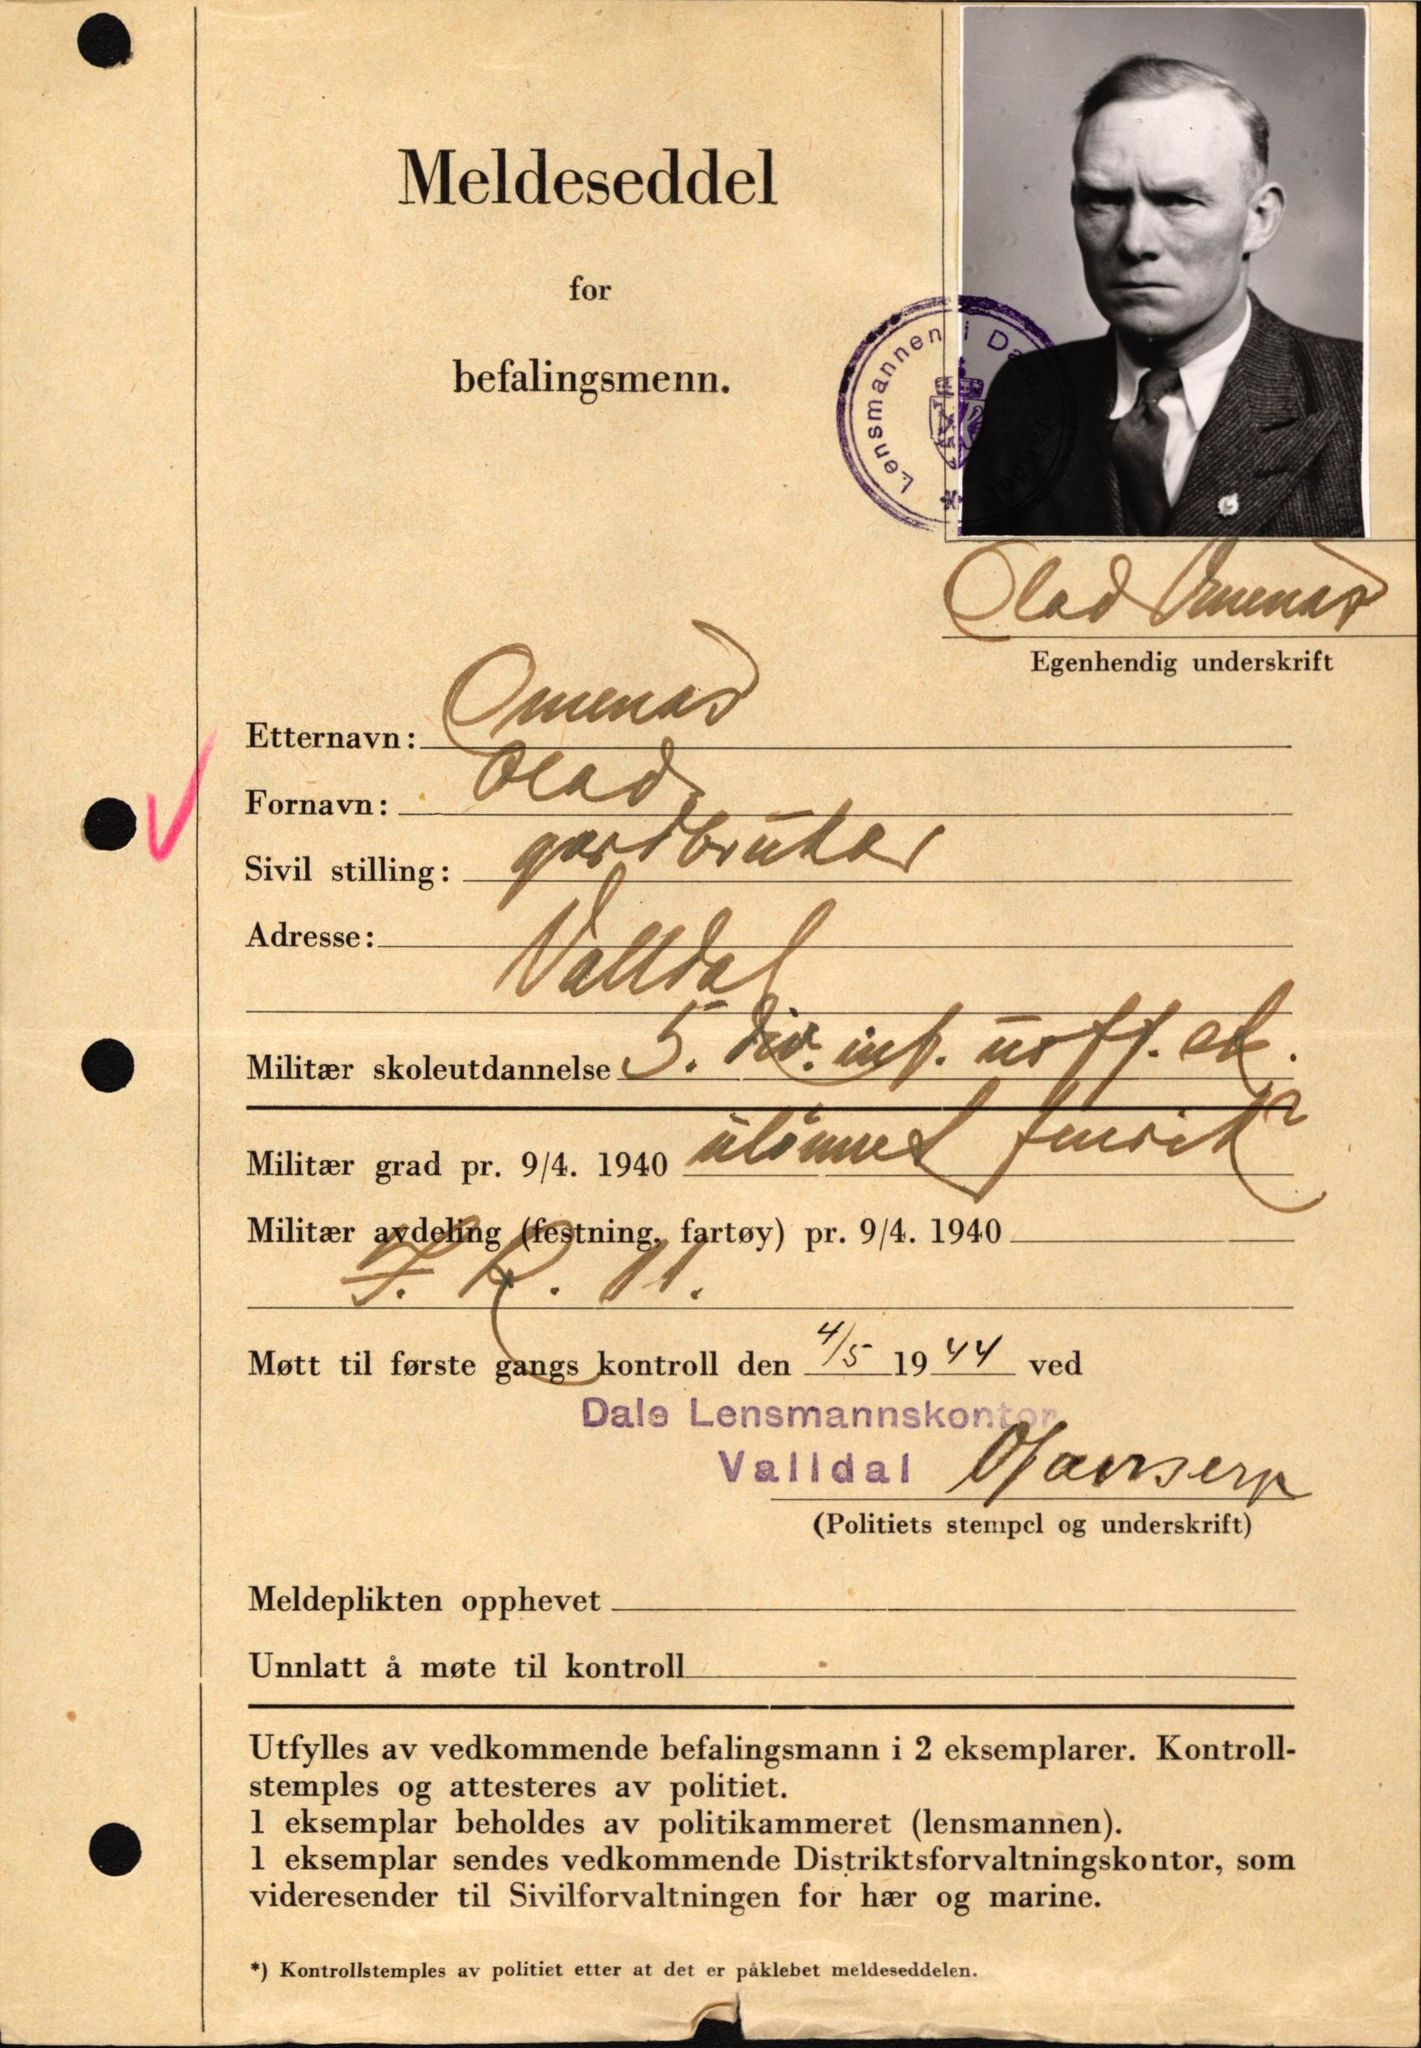 Meldeseddel
for
befalingsmenn.
Lensmannen i Dale Valldal
Olad Omenås
Egenhendig underskrift
Etternavn: Omenås
Fornavn: Olad
Sivil stilling: gardbruker
Adresse:
Valldal
Militær skoleutdannelse 5. div. inf. uoff. sk.
Militær grad pr. 9/4. 1940 ulønnet fenrik
Militær avdeling (festning, fartøy) pr. 9/4. 1940
I. R. 11.
Møtt til første gangs kontroll den 4/5 1944 ved
Dale Lensmannskontor
Valldal
(Politiets stempel og underskrift)
Meldeplikten opphevet
Unnlatt å møte til kontroll
Utfylles av vedkommende befalingsmann i 2 eksemplarer. Kontroll-
stemples og attesteres av politiet.
1 eksemplar beholdes av politikammeret (lensmannen).
1 eksemplar sendes vedkommende Distriktsforvaltningskontor, som
videresender til Sivilforvaltningen for hær og marine.
*) Kontrollstemples av politiet etter at det er påklebet meldeseddelen.